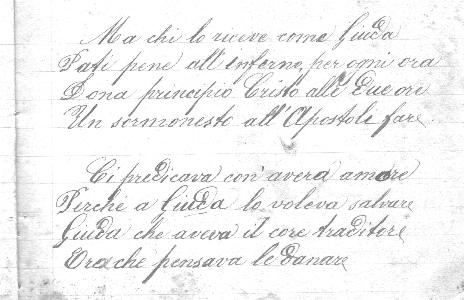 Ma chi lo riceve come Giuda
Pati pene all'inferno, per omi ora
Dona principio Cristo alle Due ore
Un sormonesto all'Apostoli fare
Ci predicava con' avera amore
Perche a Giuda lo voleva salvare
Giuda che aveva il core traditore
Ora che pensava le danare